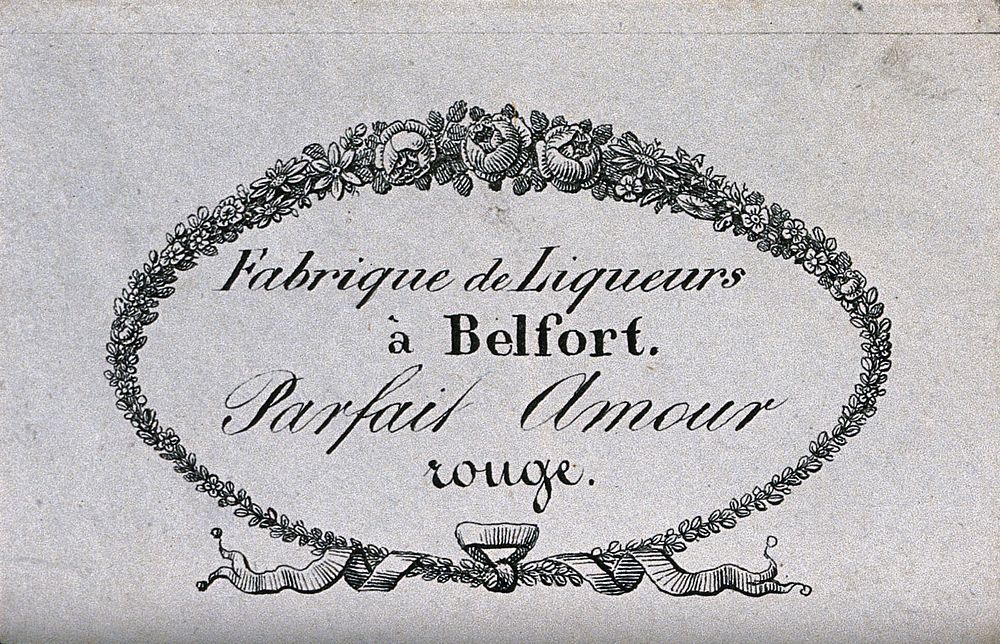 Fabrique de Liqueurs
à Belfort.
Parfait Amour
rouge.